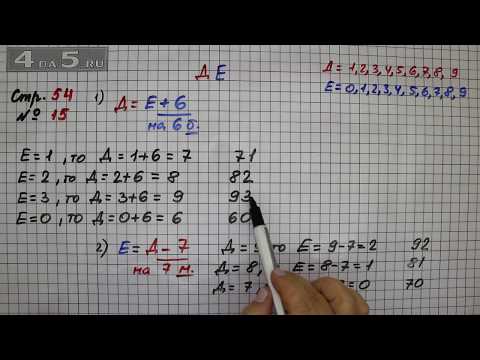 4DA5.RU
Д Е
Д = 1,2,3,4,5,6,7,8, 9
Е = 0,1,2,3,4,5,6,7,8,9
Стр. 54
№ 15
1) Д = Е + 6
на 6 б.
Е = 1 , то Д = 1+6 = 7 71
Е = 2 , то Д = 2+6 = 8 82
Е = 3 , то Д = 3+6 = 9 93
Е = 0 , то Д = 0+6 = 6 60
2) Е = Д - 7
на 7 м.
Д = 9 то Е = 9-7 = 2 92
Д = 8, Е = 8-7 = 1 81
Д = 7, = 0 70